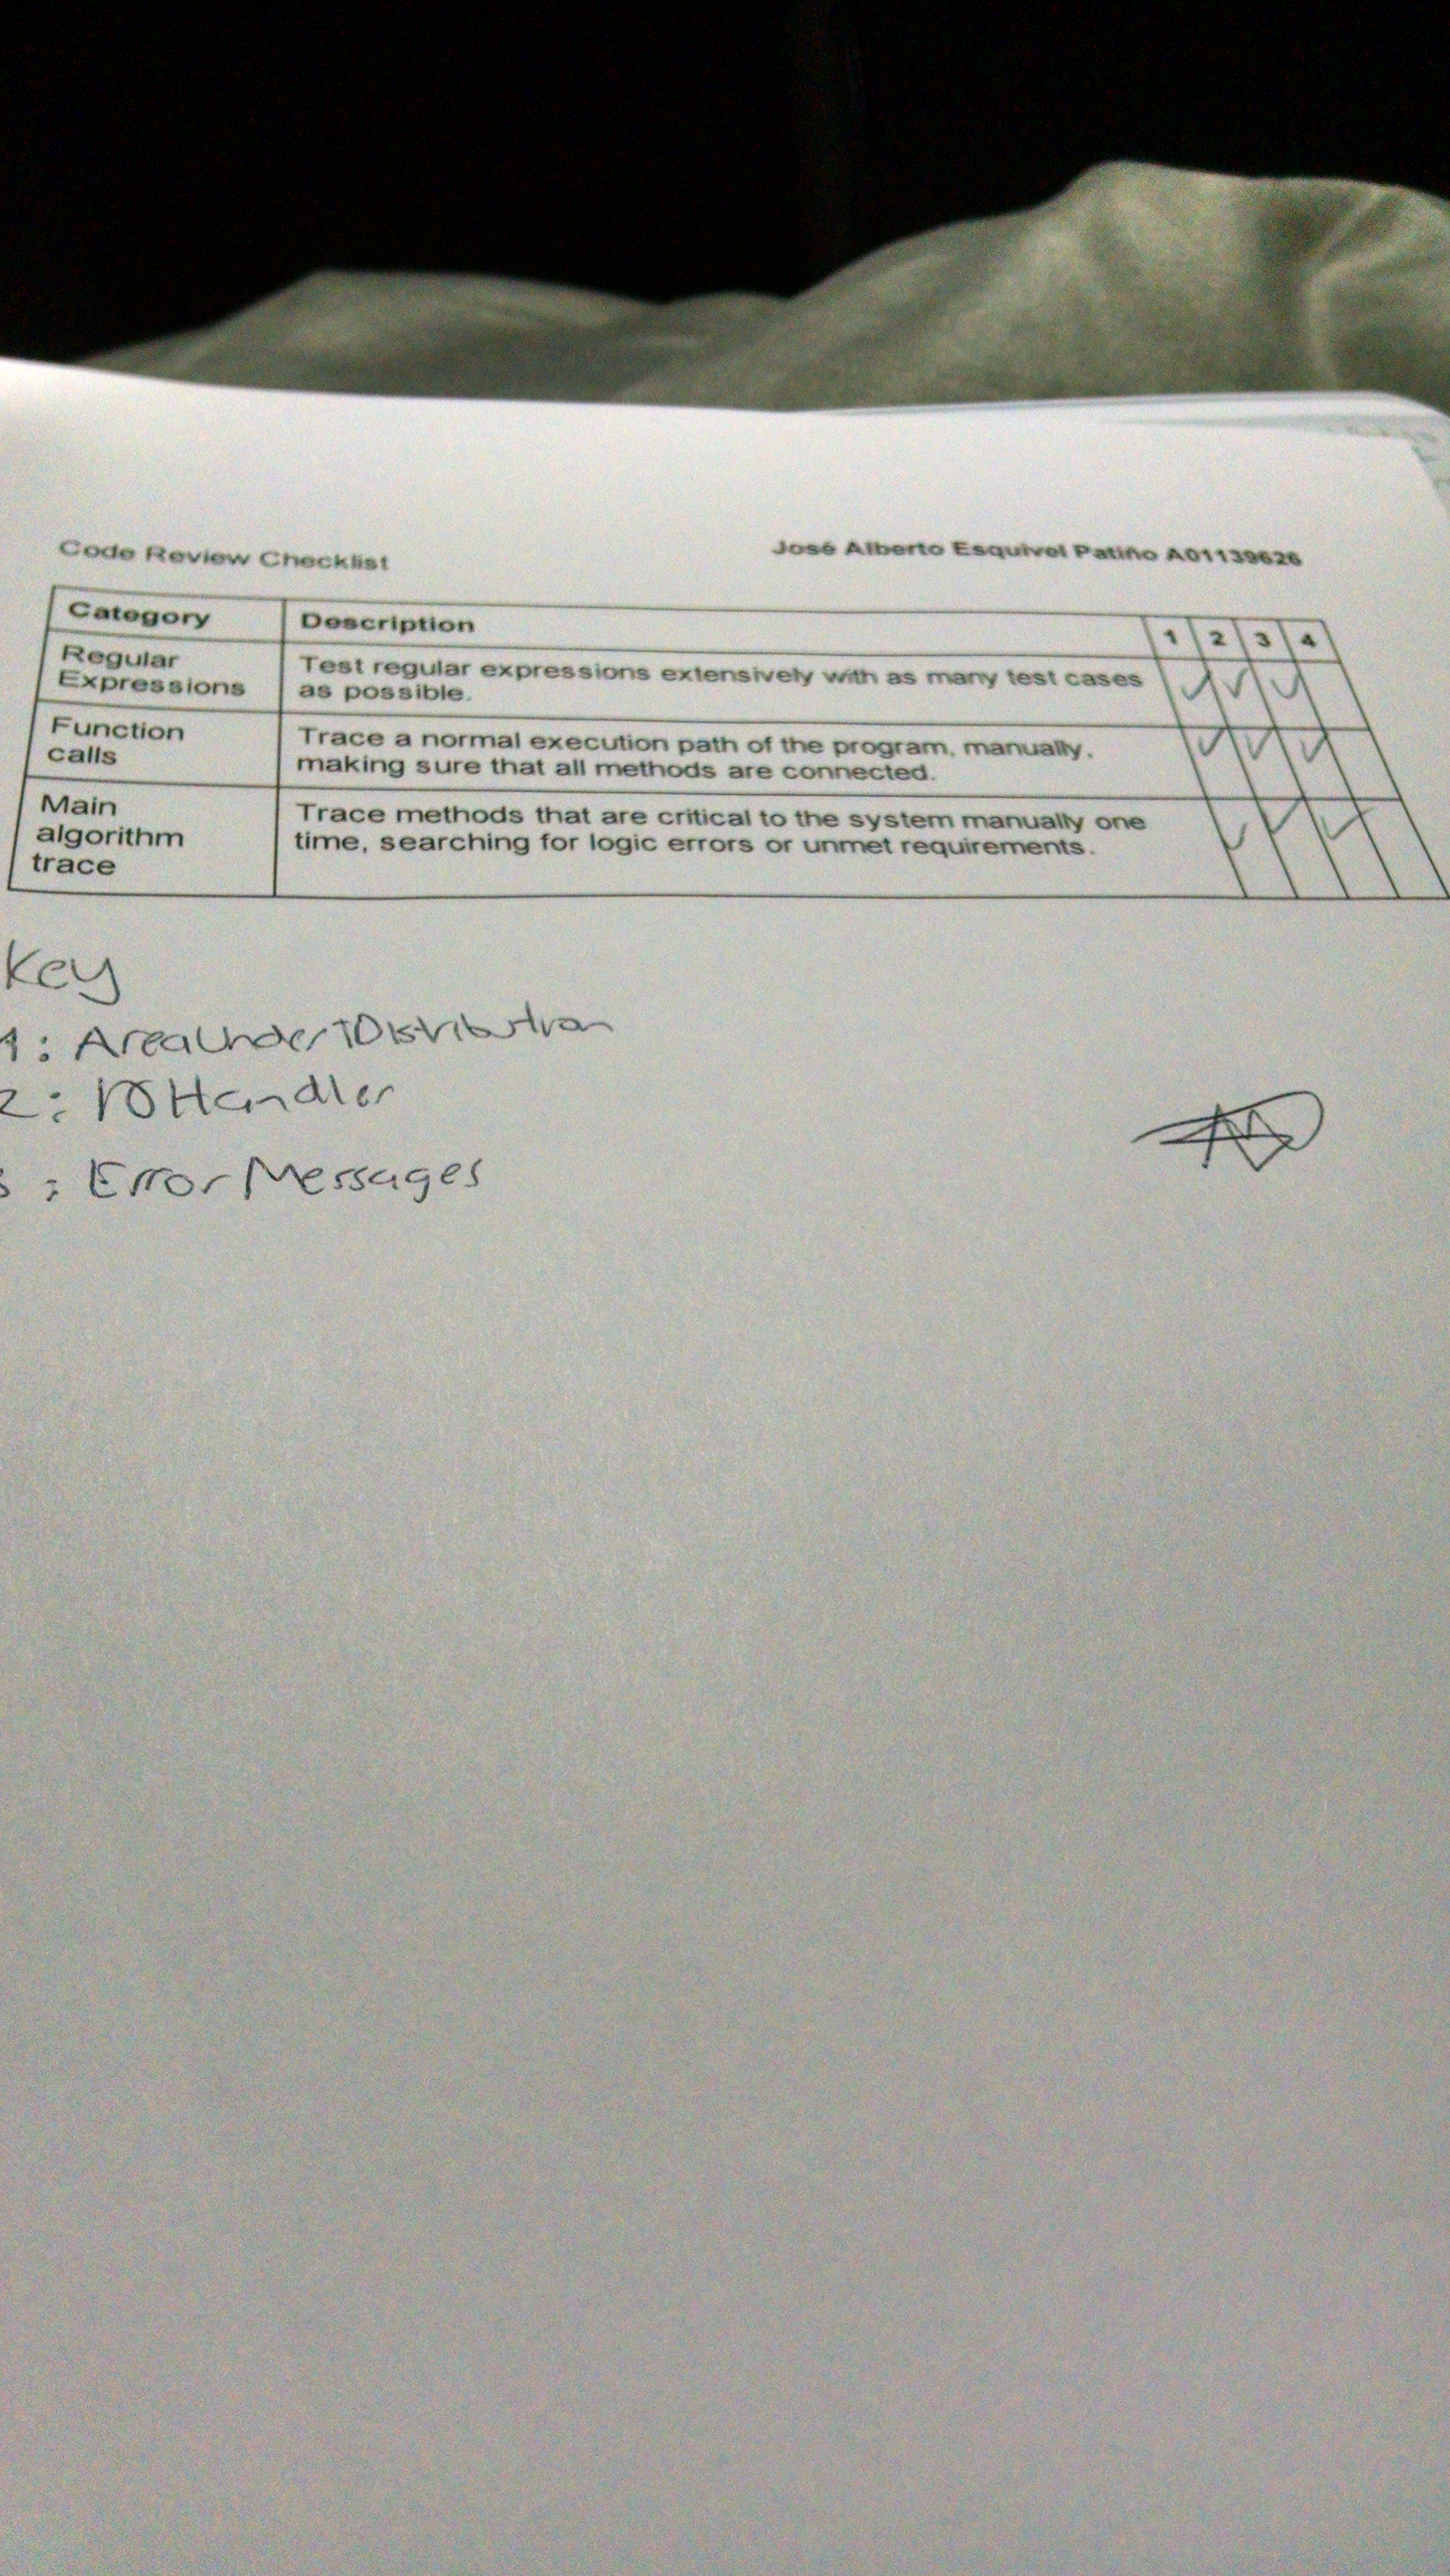 Code Review Checklist
José Alberto Esquivel Patiño A01139626
Category Description 1 2 3 4
Regular Expressions
Test regular expressions extensively with as many test cases
as possible.
Function calls
Trace a normal execution path of the program, manually,
making sure that all methods are connected.
Main algorithm trace
Trace methods that are critical to the system manually one
time, searching for logic errors or unmet requirements.
Key
1:
2: IOHandler
3: Error Messages